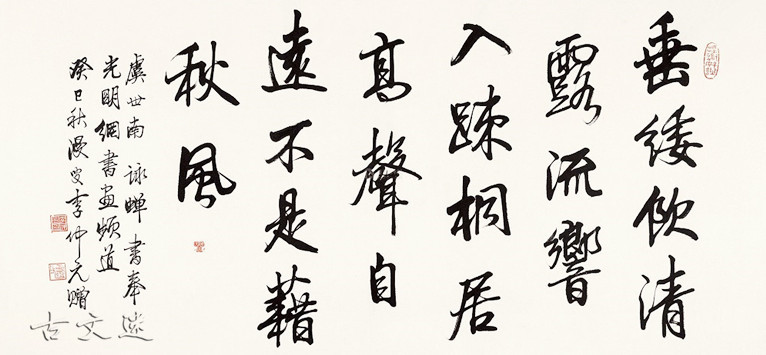 垂緌飲清
露流響
入踈桐居
高聲自
遠不是藉
秋風
虞世南詠蟬書奉
光明網書畫頻道
癸巳秋漫叟李仲元贈
古文迷